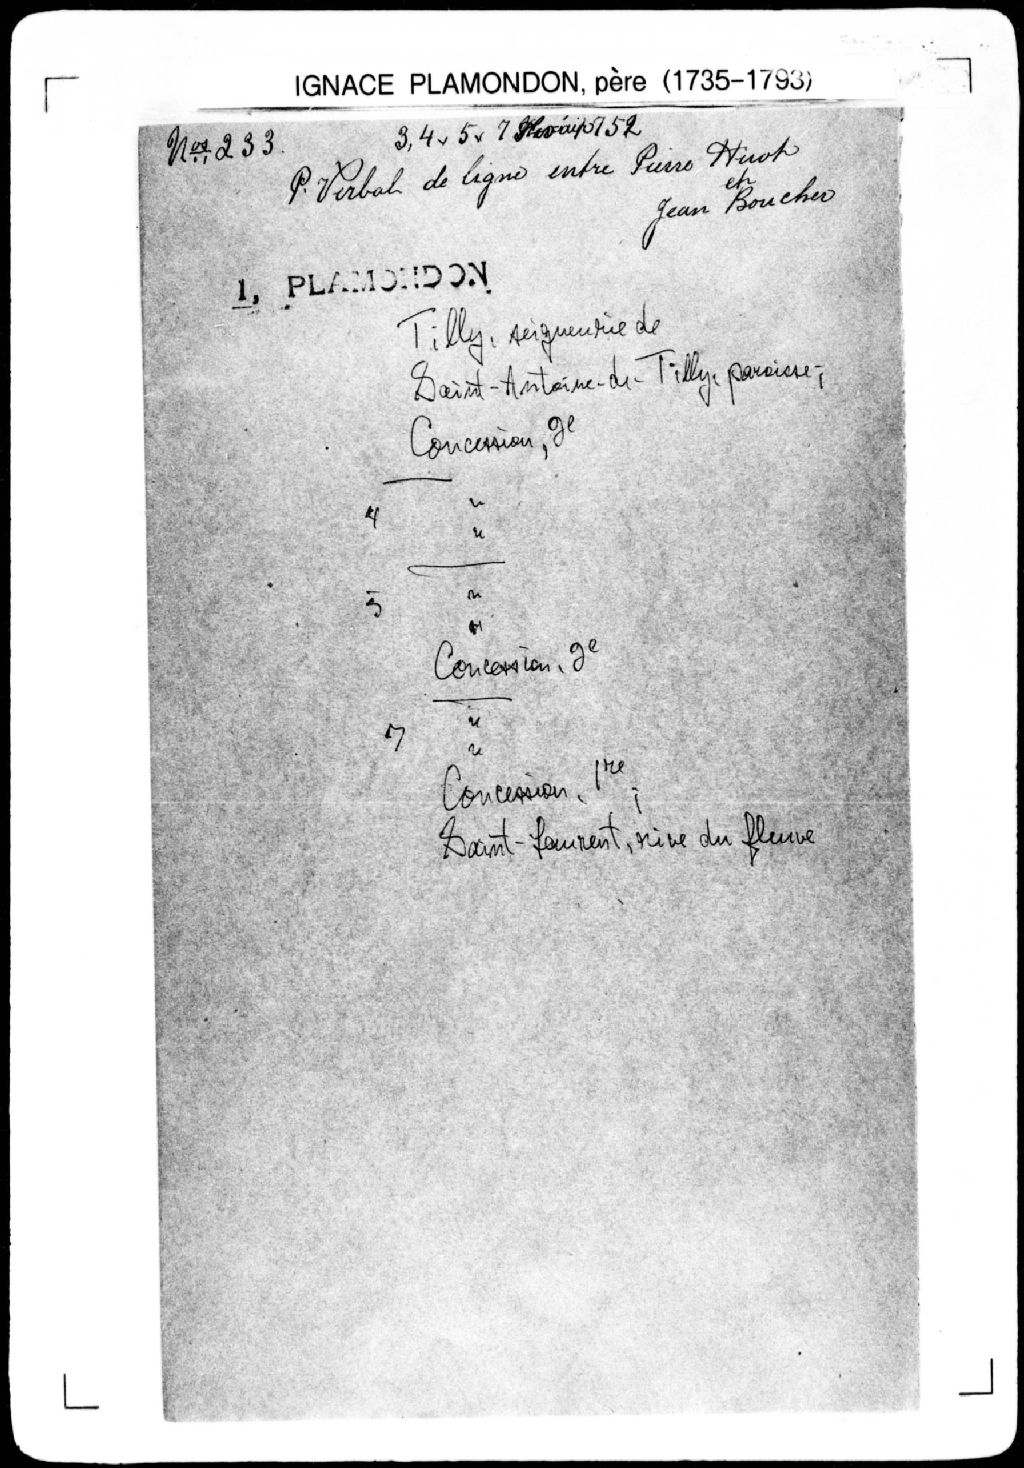 IGNACE PLAMONDON, père (1735-1793)
Nos 233. 3, 4, 5, 7 1752
P. Verbal de ligne entre Pierre Huot
et
Jean Boucher
I, PLAMONDON
Tilly, seigneurie de
Saint-Antoine-de-Tilly, paroisse;
Concession, 2e
4 "
"
5 "
"
Concession, 2e
7 "
"
Concession, 1re;
Saint-Laurent, rive du fleuve